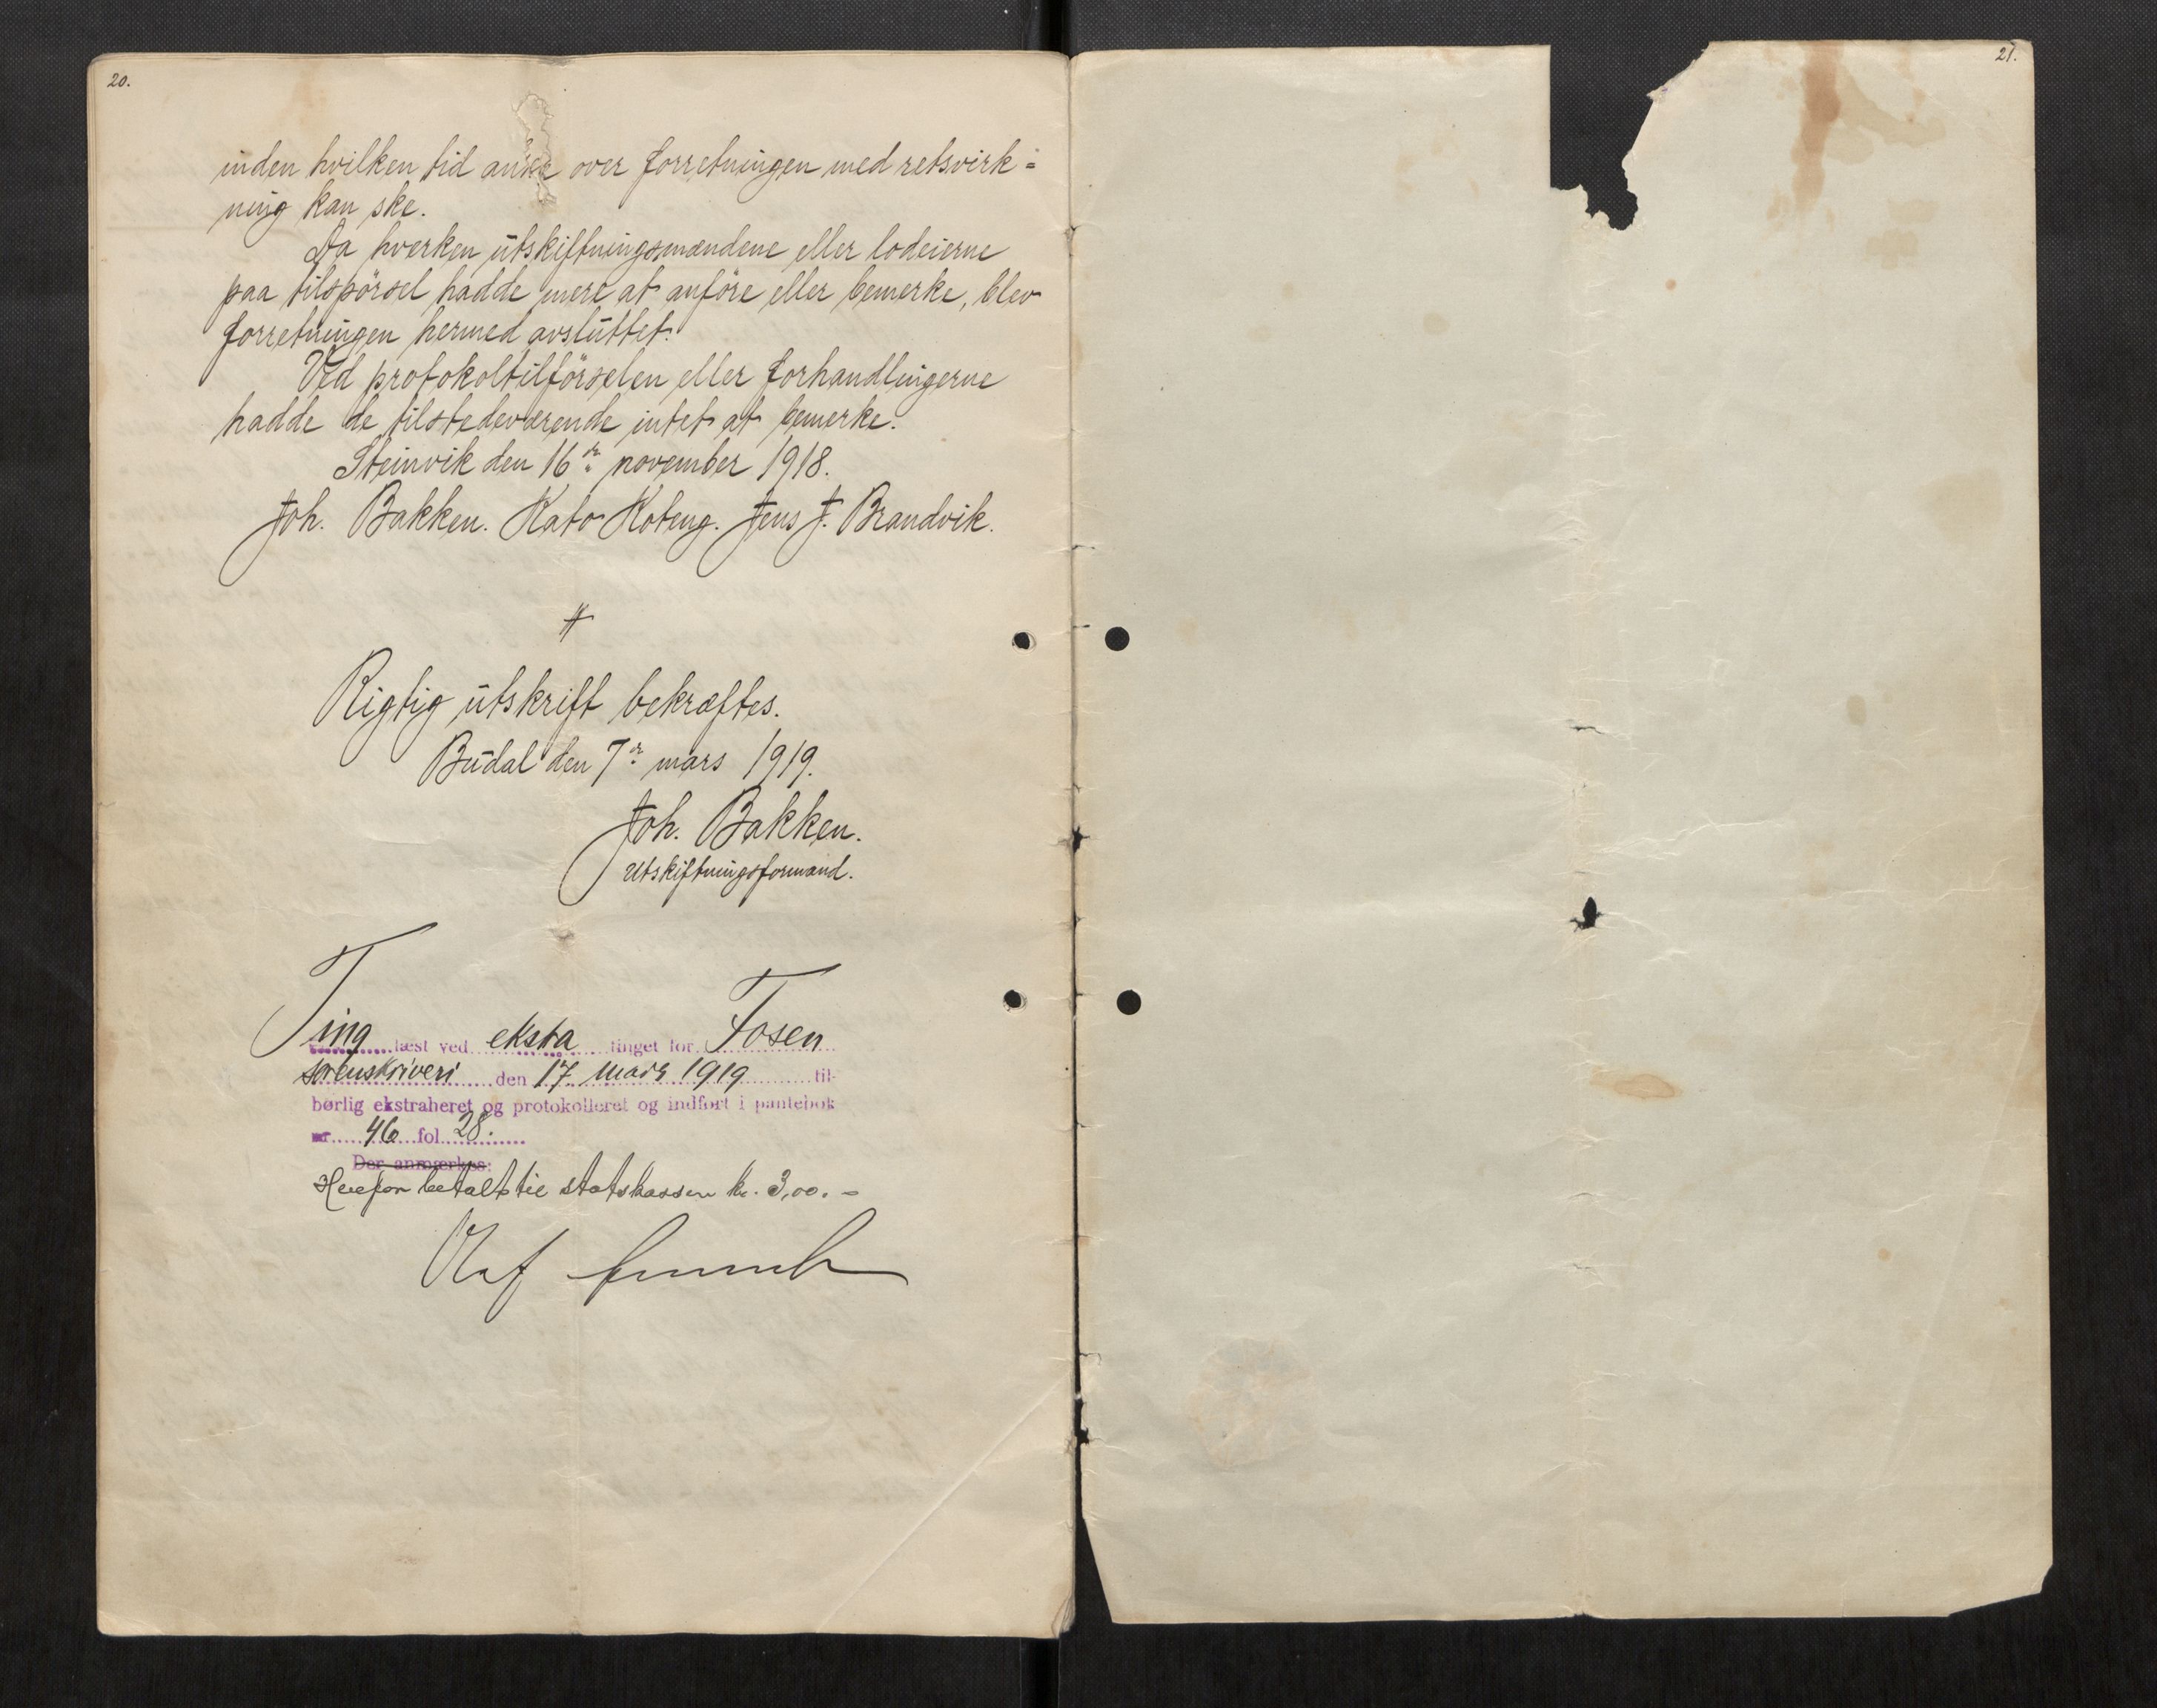 20.
inden hvilken tid anke over forretningen med retsvirk=
ning kan ske.
Da hverken utskiftningsmændene eller lodeierne
paa tilspörsel hadde mere at anföre eller bemerke, blev
forretningen hermed avsluttet.
Ved protokoltilförselen eller forhandlingerne
hadde de tilstedeværende intet at bemerke.
Steinvik den 16de november 1918.
Joh. Bakken. Kato Koteng. Jens J. Brandvik.
Rigtig utskrift bekræftes.
Budal den 7de mars 1919.
Joh. Bakken.
Utskiftningsformand.
Ting læst ved eksta tinget for Fosen
sorenskriveri den 17 mars 1919 til-
børlig ekstraheret og protokolleret og indført i pantebok
nr 46 fol 28.
Der anmærkes:
Herfor betalt til statskassen kr. 3,00.-
Olaf
21.